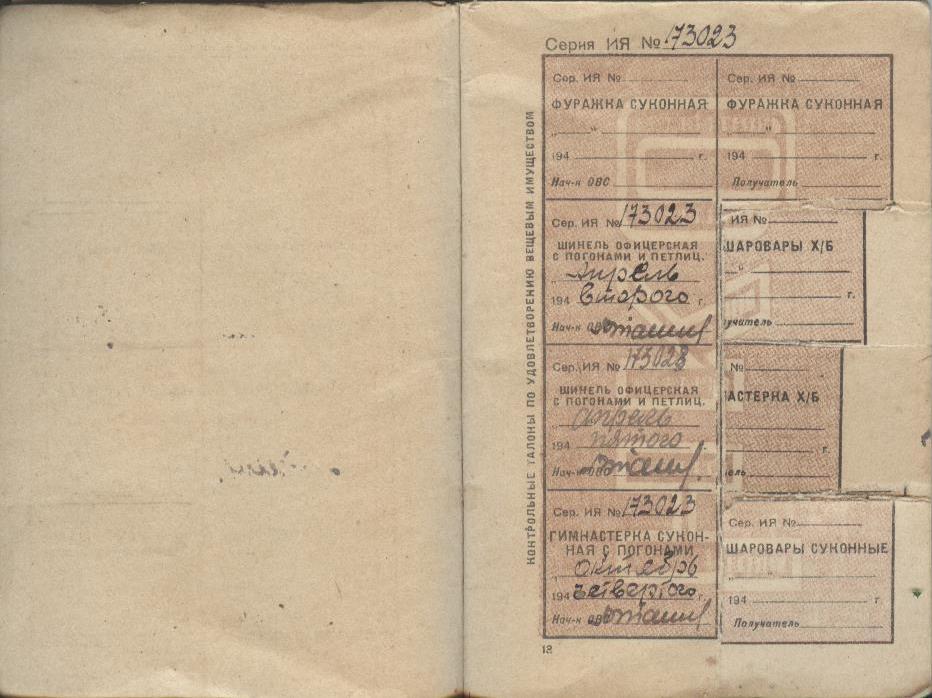 Серия ИЯ № 173023
КОНТРОЛЬНЫЕ ТАЛОНЫ ПО УДОВЛЕТВОРЕНИЮ ВЕЩЕВЫМ ИМУЩЕСТВОМ
Сер. ИЯ №
ФУРАЖКА СУКОННАЯ
„ “
194 г.
Нач-к ОВС
Сер. ИЯ №
ФУРАЖКА СУКОННАЯ
„
194 г.
Получатель
Сер. ИЯ № 173023
ШИНЕЛЬ ОФИЦЕРСКАЯ
С ПОГОНАМИ И ПЕТЛИЦ.
Апрель
194 второго г.
Нач-к ОВС
ИЯ №
ШАРОВАРЫ Х/Б
“
г.
учатель
Сер. ИЯ № 173023
ШИНЕЛЬ ОФИЦЕРСКАЯ
С ПОГОНАМИ И ПЕТЛИЦ.
апрель
194 пятого
Нач-к ОВС
№
АСТЕРКА Х/Б
г.
ель
Сер. ИЯ № 173023
ГИМНАСТЕРКА СУКОН-
НАЯ С ПОГОНАМИ
октябрь
194 четвертого г.
Нач-к ОВС
Сер. ИЯ №
ШАРОВАРЫ СУКОННЫЕ
„
194 г.
Получатель
13